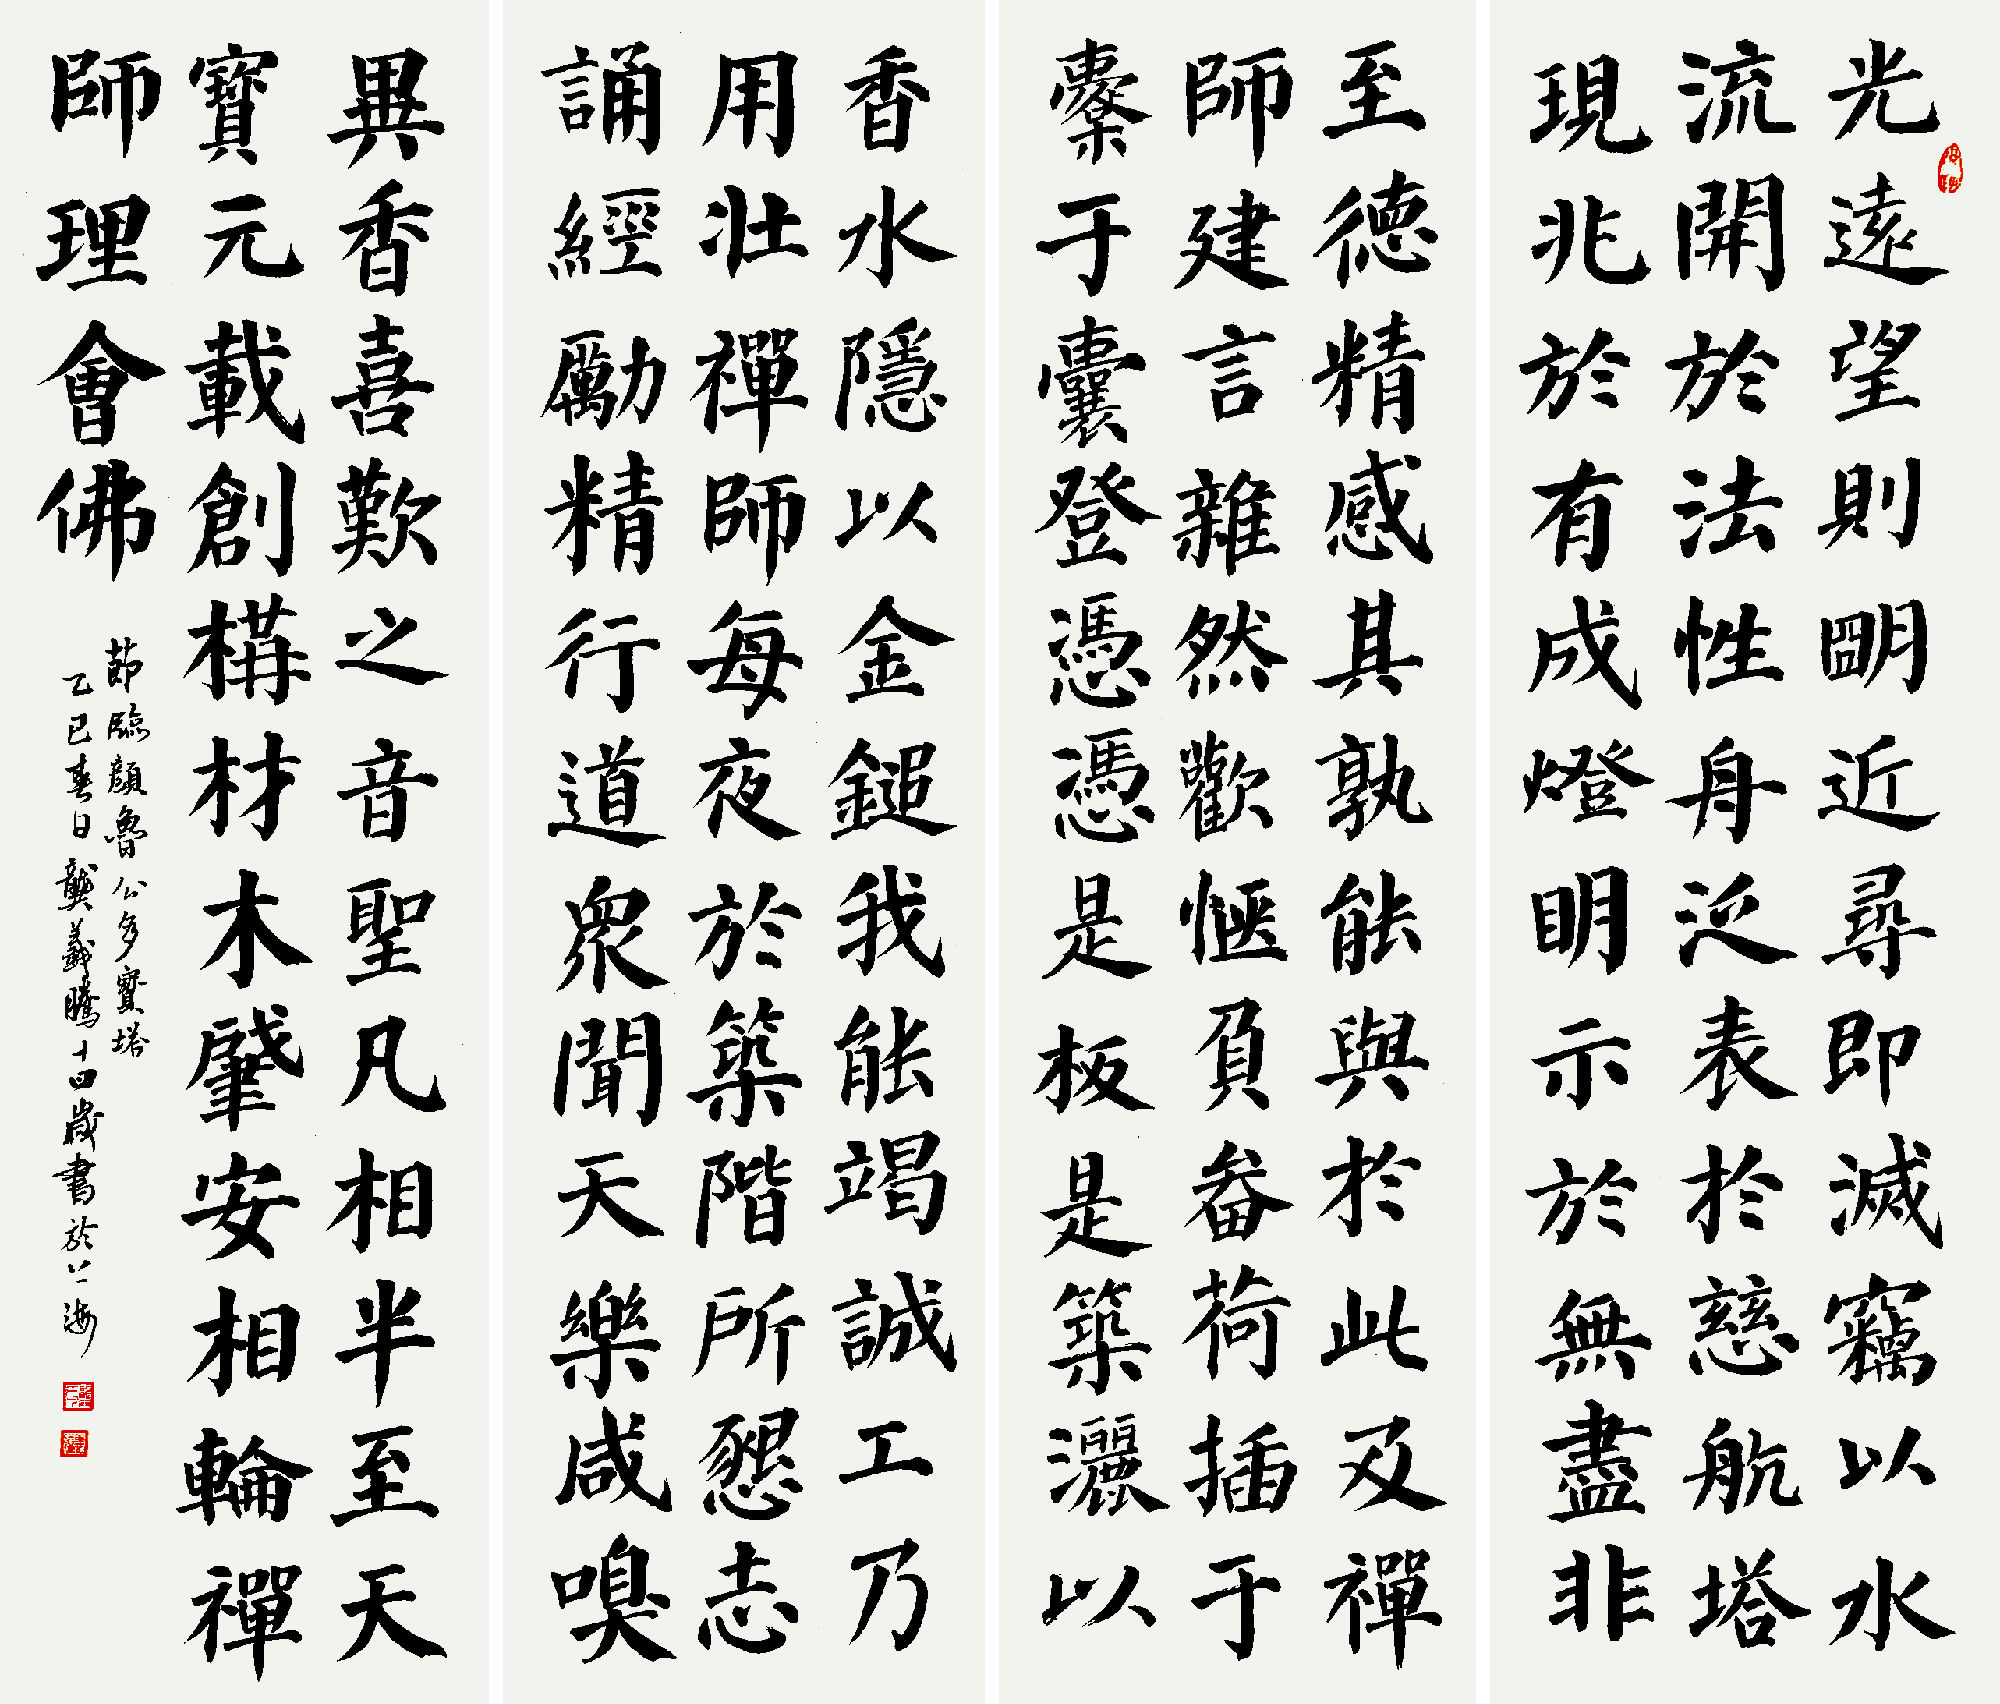 光遠望則朙近尋即滅竊以水
流開於法性舟泛表於慈航塔
現兆於有成燈眀示於無盡非
至德精感其孰能與於此及禪
師建言雜然歡愜負畚荷插于
橐于囊登憑憑是板是築灑以
香水隱以金鎚我能竭誠工乃
用壯禪師每夜於築階所懇志
誦經勵精行道衆聞天樂咸嗅
異香喜歎之音聖凡相半至天
寶元載創構材木肇安相輪禪
師理會佛
節臨顏魯公多寶塔
乙巳春日龔義騰十四歲書於上海